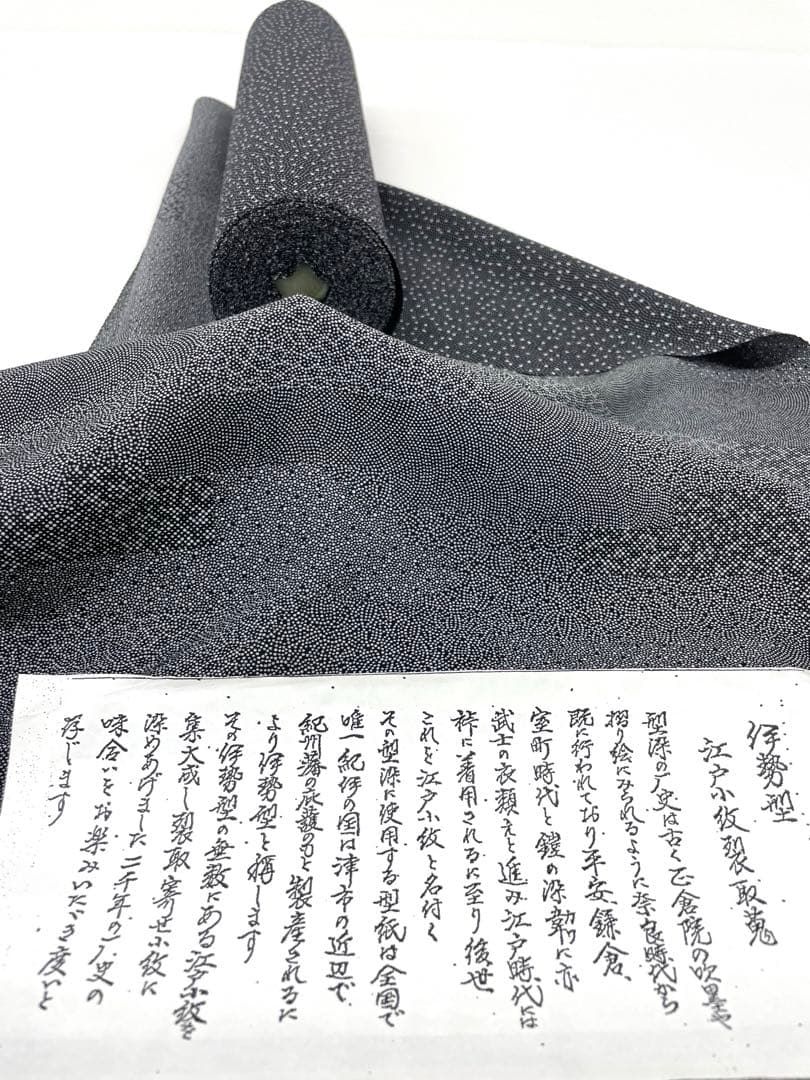 伊勢型
江戸小紋裂取蒐
型染の歴史は古く正倉院の吹墨や
摺り絵にみられるように奈良時代から
既に行われており平安、鎌倉、
室町時代と鎧の染韋に亦
武士の衣類えと進み江戸時代には
裃に着用されるに至り後世
これを江戸小紋と名付く
その型染に使用する型紙は全国で
唯一紀伊の国は津市の近辺で
紀州藩の庇護のもと製産されるに
より伊勢型と稱します
その伊勢型の無数にある江戸小紋を
集大成し裂取寄せ小紋に
染めあげました二千年の歴史の
味合いをお楽みいたゞき度いと
存じます